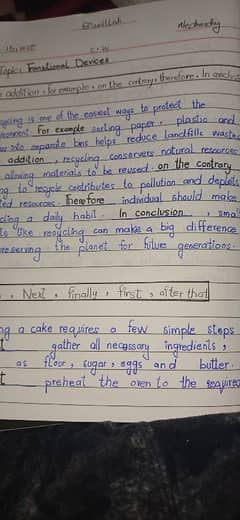 Bismillah
Wednesday
C.W
Topic: Transitional Devices
addition, for example, on the contrary, therefore, In conclus
cycling is one of the easiest ways to protect the
vironment. For example sorting paper, plastic and
into separate bins helps reduce landfills waste
addition, recycling conservers natural resources
allowing materials to be reused. on the contrary
ng to recycle contributes to pollution and deplets
ted resources. Therefore individual should make
cling a daily habit. In conclusion, smal
ts like recycling can make a big difference
preserving the planet for future generations.
, Next, finally, first, after that
ng a cake requires a few simple steps
t gather all necessary ingredients,
as flour, sugar, eggs and butter.
t preheat the oven to the required